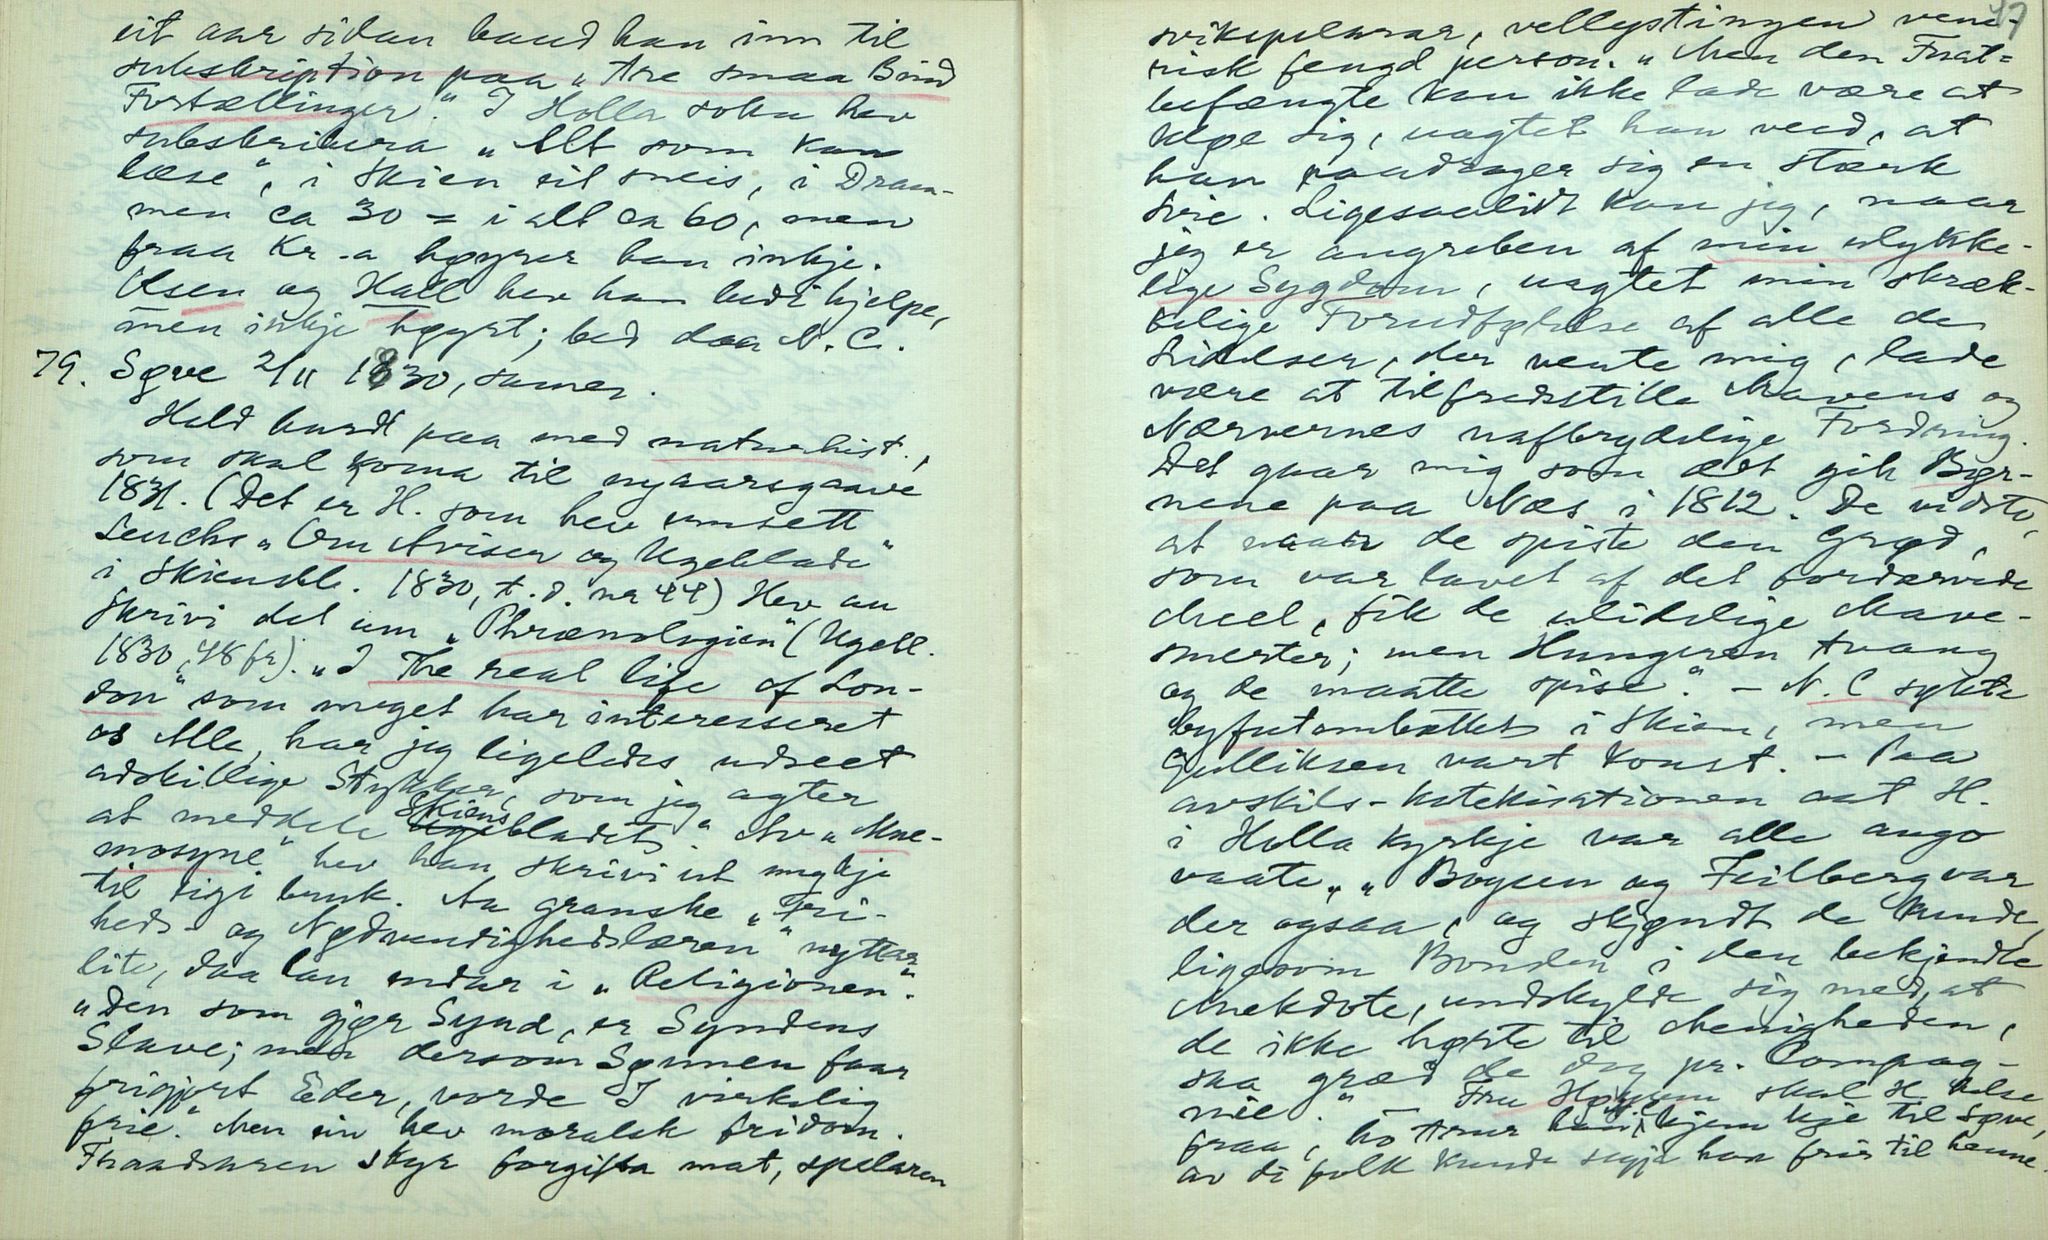 eit aar sidan baud han inn til
subskription paa „tre smaa Bind
Fortællinger." I Holla sokn hev
subskribera „Alt som kan
læse", i Skien eit sneis, i Dram-
men ca 30 = i alt ca 60, men
fraa Kr.a høyrer han inkje.
Olsen og Hall hev han bedi hjelpe,
men inkje høyrt; bed daa N. C.
79. Søve 2/11 1830, samer.
Held hardt paa med naturhist.,
som skal koma til nyaarsgaave
1831. (Det er H. som hev umsett
Leuchs „Om Aviser og Ugeblade"
i Skiensbl. 1830, t. d. nr 44) Hev au
skrivi det um „Phrænologien" (Ugebl.
1830, 48 fr). „I The real life of Lon-
don" som meget har interesseret
os Alle, har jeg ligeledes udseet
adskillige Stykker, som jeg agter
at meddele Skiensbladet." Av „Mne-
mosyne" hev han skrivi ut mykje
til eigi bruk. Aa granske „Fri-
heds- og Nødvendighedslæren" nyttar
lite, daa han endar i „Religionen".
„Den som gjør Synd, er Syndens
Slave; men dersom Sønnen faar
frigjort Eder, vorde I virkelig
frie." Men ein hev moralsk fridom.
Fraadsaren skyr forgifta mat, spelaren
47
svikspelarar, vellystingen vene-
risk fengd person. „Men den Fnat-
befængte kan ikke lade være at
kløe sig, uagtet han veed, at
han paadrager sig en stærk
Svie. Ligesaalidt kan jeg, naar
jeg er angreben af min ulykke-
lige Sygdom, uagtet min skræk-
kelige Forudfølelse af alle de
Lidelser, der vente mig, lade
være at tilfredsstille Mavens og
Nærvernes uafbrydelige Fordring.
Det gaar mig som det gik Bør-
nene paa Næs i 1812. De vidste,
at naar de spiste den Grød,
som var lavet af det fordærvede
Meel, fik de ulidelige Mave-
smerter; men Hungeren tvang
og de maatte spise." – N. C søkte
byfutembættet i Skien, men
Gulliksen vart konst. – Paa
avskils-katekisationen aat H.
i Holla kyrkje var alle augo
vaate, „Boyesen og Feilberg var
der ogsaa, og skjøndt de kunde,
ligesom Bonden i den bekjendte
Anekdote, undskylde sig med, at
de ikke hørte til Menigheden,
saa græd de dog pr. Compag-
nie." – Fru Høyum skal H. helse
fraa, ho trur han ikkje kjem kje til Søve,
av di folk kunde segja han frir til henne.